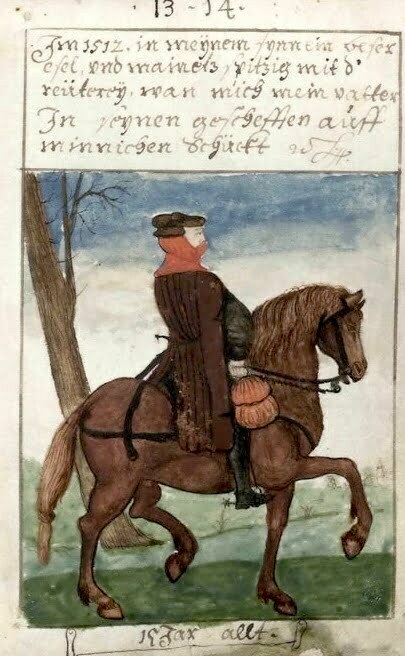 13 - 14.
Im 1512. in meynem synn ein beser
esel, vnd mainets spitzig mit d'
reuterey, wan mich mein vatter
In seynen geschefften auff
minnichen Schückt
15 Jar allt.